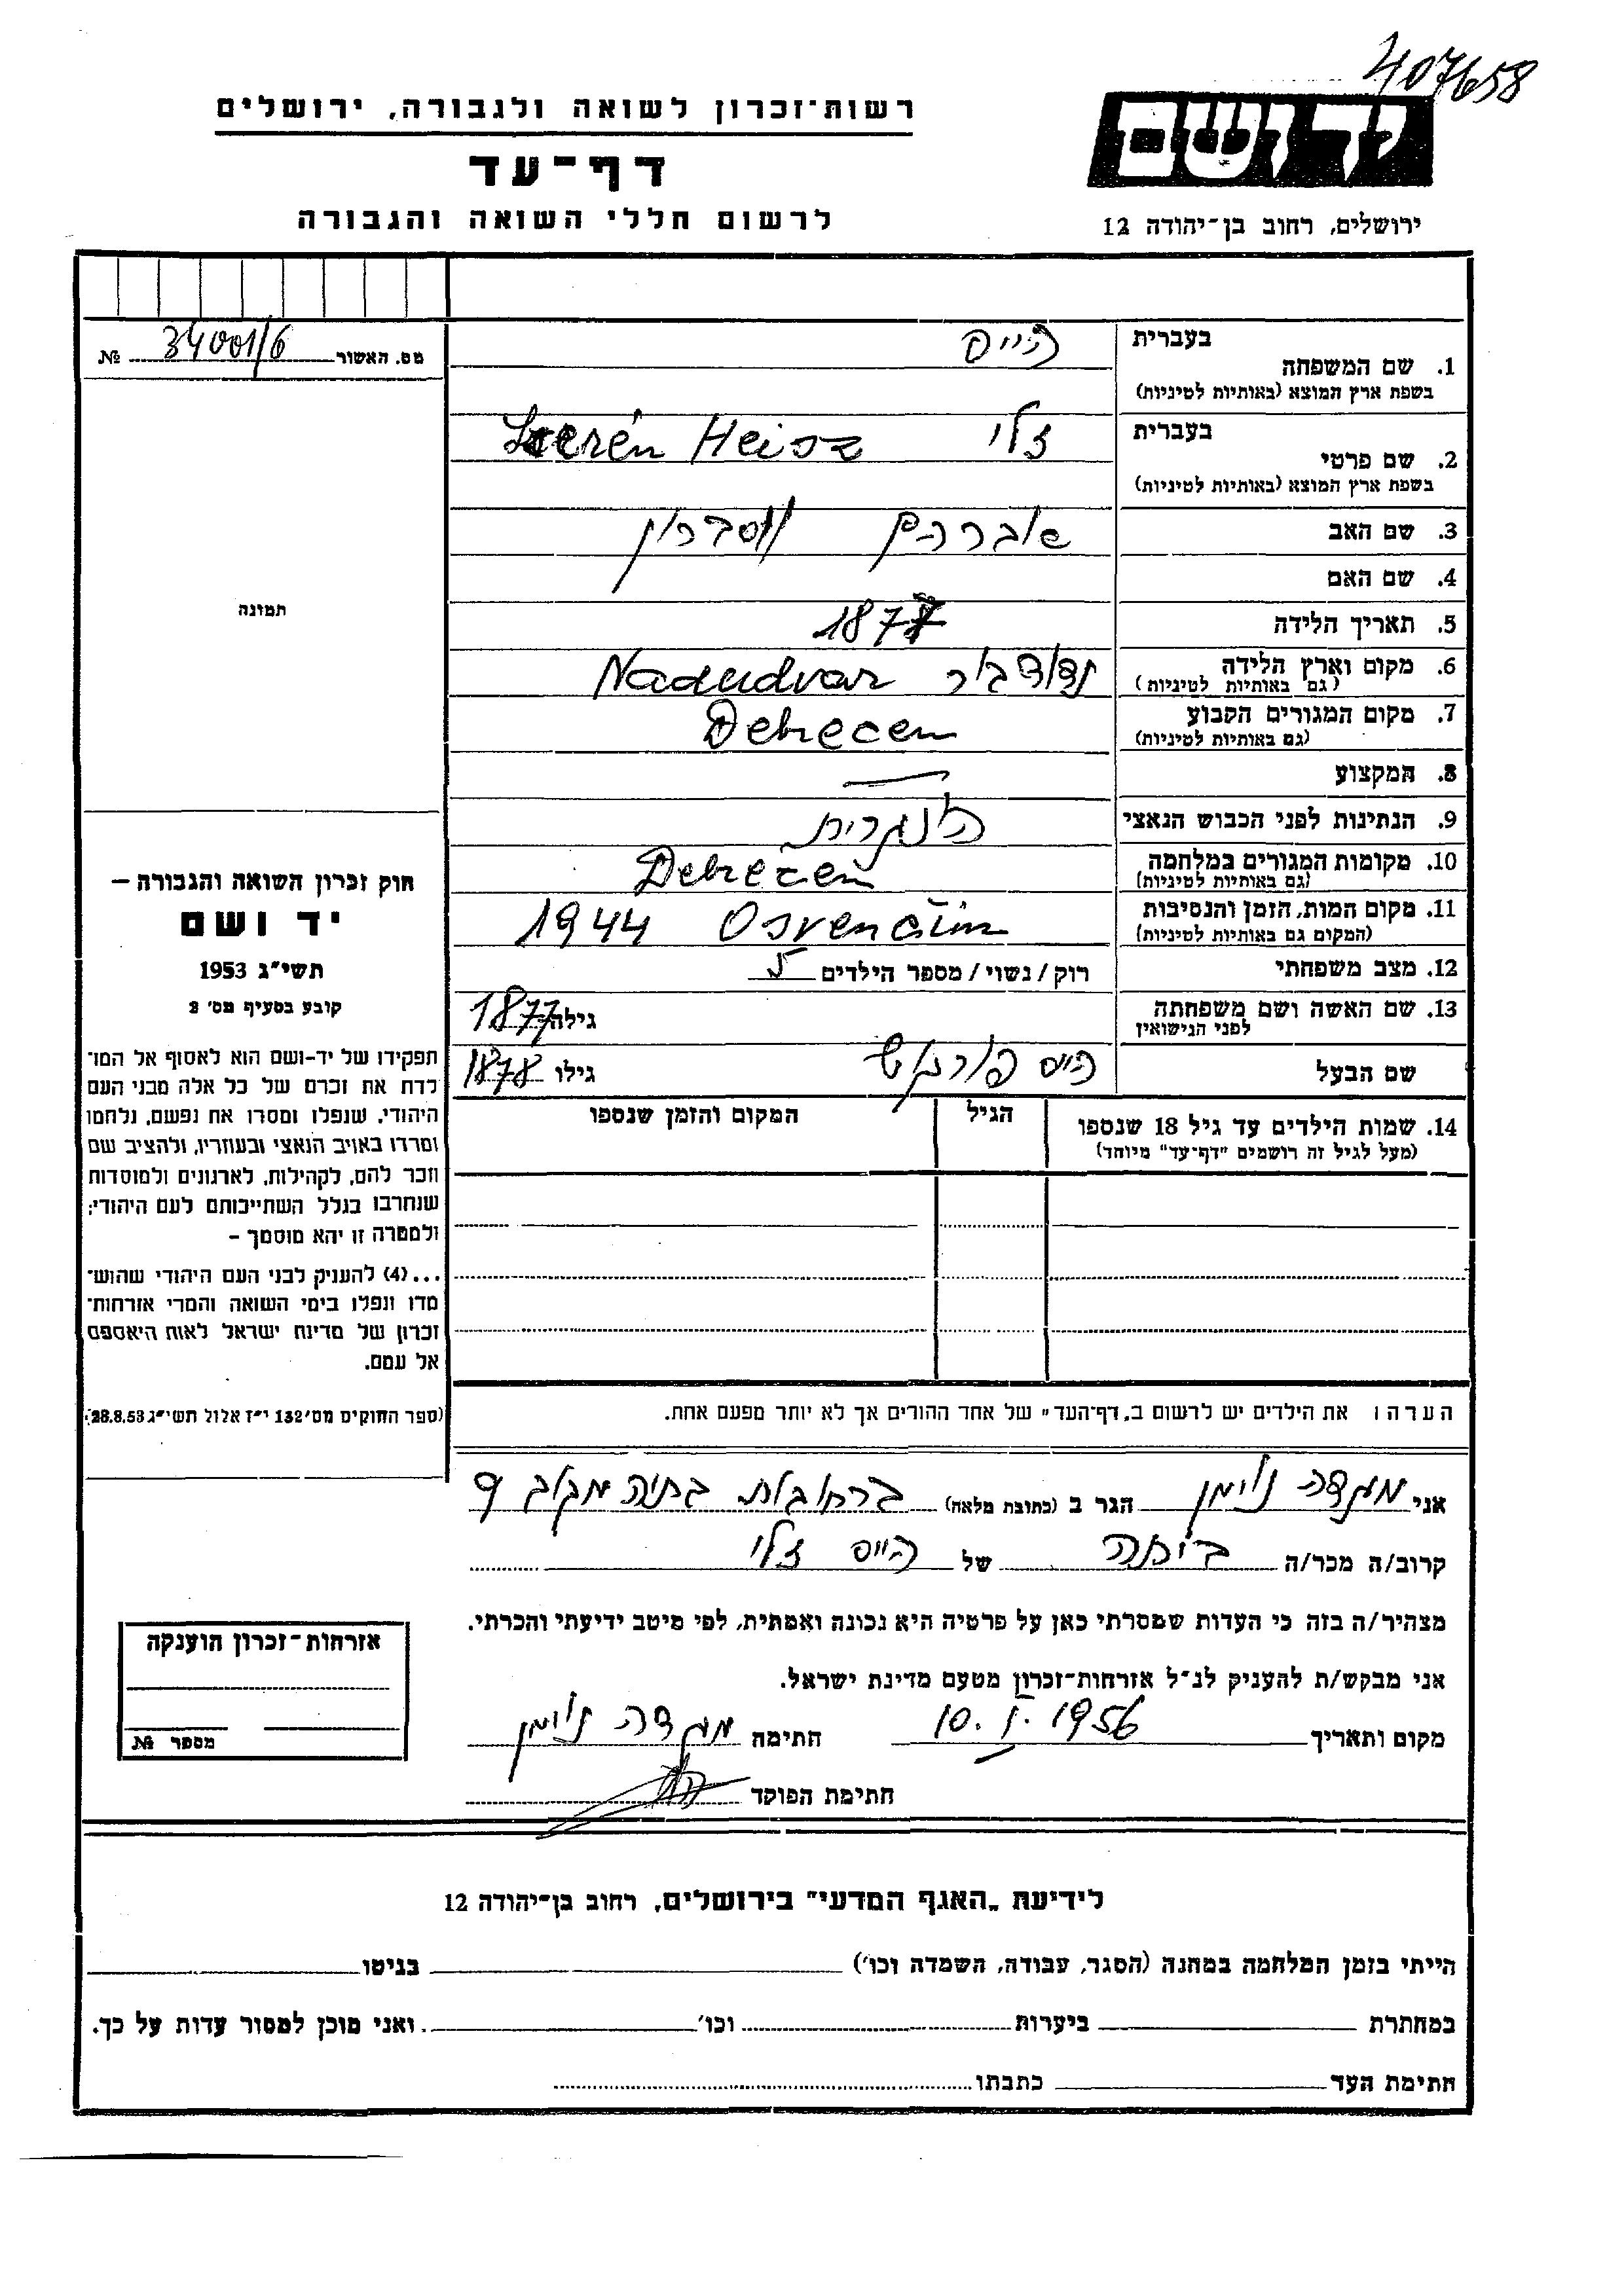 407658
רשות־זכרון לשואה ולגבורה, ירושלים
יד ושם
דף־עד
לרשום חללי השואה והגבורה
ירושלים, רחוב בן־יהודה 12
מס. האשור 34001/6 №
בעברית הייס
1. שם המשפחה
בשפת ארץ המוצא (באותיות לטיניות)
בעברית זלי Heisz
2. שם פרטי
בשפת ארץ המוצא (באותיות לטיניות)
3. שם האב אברהם
4. שם האם
5. תאריך הלידה 1877
6. מקום וארץ הלידה נדודבר Nadudvar
(גם באותיות לטיניות)
7. מקום המגורים הקבוע Debrecen
(גם באותיות לטיניות)
8. המקצוע —
9. הנתינות לפני הכבוש הנאצי הונגרית
10. מקומות המגורים במלחמה Debrecen
(גם באותיות לטיניות)
11. מקום המות, הזמן והנסיבות Osvenčim 1944
(המקום גם באותיות לטיניות)
12. מצב משפחתי רוק/נשוי/מספר הילדים 5
13. שם האשה ושם משפחתה גילה 1877
לפני הנישואין
שם הבעל הייס גילו 1878
14. שמות הילדים עד גיל 18 שנספו הגיל המקום והזמן שנספו
(מעל לגיל זה רושמים "דף־עד" מיוחד)
הערה: את הילדים יש לרשום ב„דף־העד" של אחד ההורים אך לא יותר מפעם אחת.
אני מגדה ניימן הגר ב (כתובת מלאה) ברחובות
קרוב/ה מכר/ה ביתה של הייס זלי
מצהיר/ה בזה כי העדות שמסרתי כאן על פרטיה היא נכונה ואמתית, לפי מיטב ידיעתי והכרתי.
אני מבקש/ת להעניק לנ"ל אזרחות־זכרון מטעם מדינת ישראל.
מקום ותאריך 10. I. 1956 חתימה מגדה ניימן
חתימת הפוקד
תמונה
חוק זכרון השואה והגבורה –
יד ושם
תשי"ג 1953
קובע בסעיף מס' 2
תפקידו של יד-ושם הוא לאסוף אל המו־
לדת את זכרם של כל אלה מבני העם
היהודי, שנפלו ומסרו את נפשם, נלחמו
ומרדו באויב הנאצי ובעוזריו, ולהציב שם
וזכר להם, לקהילות, לארגונים ולמוסדות
שנחרבו בגלל השתייכותם לעם היהודי;
ולמטרה זו יהא מוסמך –
...(4) להעניק לבני העם היהודי שהוש־
מדו ונפלו בימי השואה והמרי אזרחות־
זכרון של מדינת ישראל לאות היאספם
אל עמם.
(ספר החוקים מס' 132 י"ז אלול תשי"ג 28.8.53)
אזרחות־זכרון הוענקה
מספר №
לידיעת „האגף המדעי" בירושלים, רחוב בן־יהודה 12
הייתי בזמן המלחמה במחנה (הסגר, עבודה, השמדה וכו') בגיטו
במחתרת ביערות וכו' ואני מוכן למסור עדות על כך.
חתימת העד כתבתו